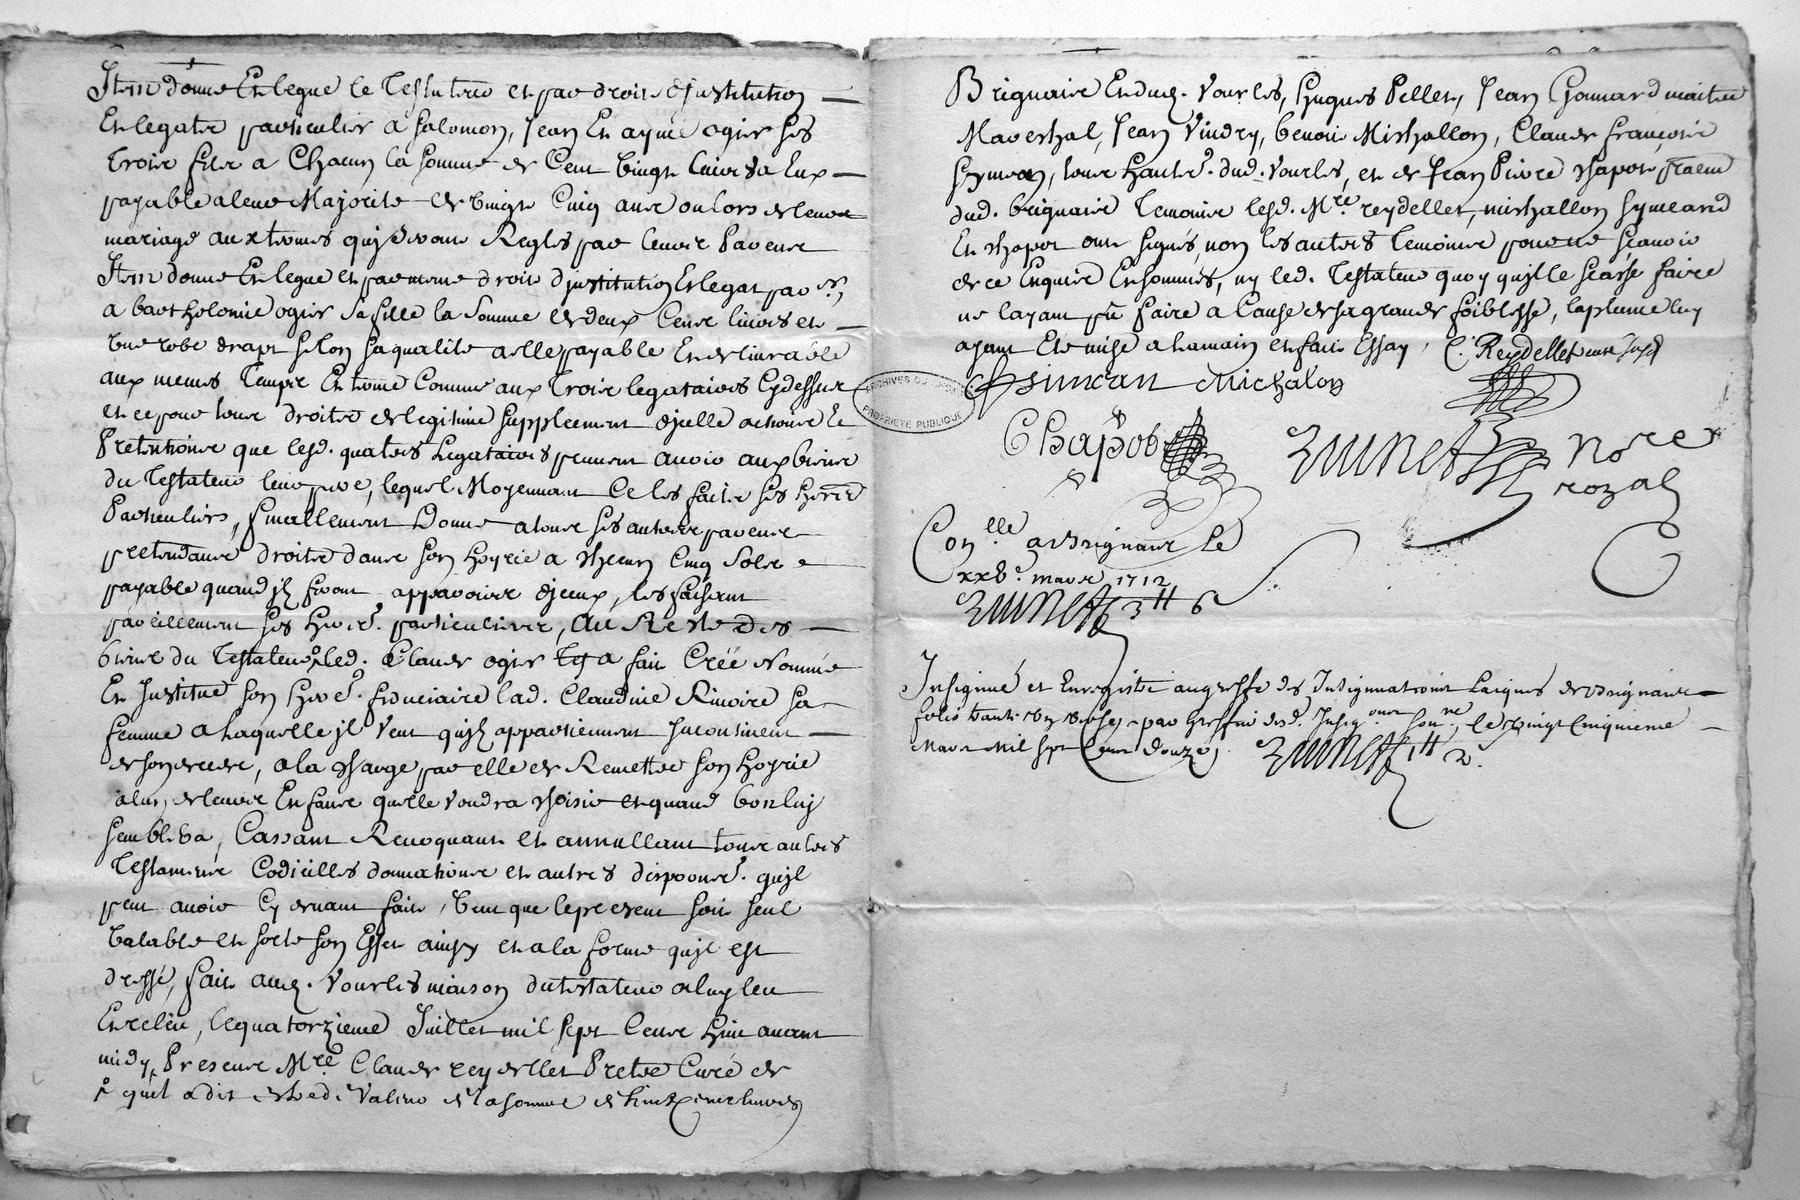 Item donne Et legue le Testateur et par droit d'Justitution
Et legatz particulier a Salomon, Jean Et aymé ogier ses
trois filz a Chacun la somme de Cent vingt livres a Eux
payable a leur Majorité de vingt Cinq ans ou lors de leurs
mariage aux termes quj seront Reglés par leurs Parens
Item donne Et legue et par meme droit d'justitution Et legat par.er
a barthelemie ogier sa fille la somme de deux Cens livres et
une robe drapt selon sa qualité a elle payable Et delivrable
aux memes Temps Et terme Comme aux Trois legataires Cydessus
et ce pour tous droits de legitime supplement d'jcelle actions Et
Pretentions que lesd. quatres Legataires peuvent avoir aux biens
du Testateur leur pere, lequel Moyennant Ce les faits ses heritrs
Particuliers, finallement Donne a tous ses autres parens
pretendants droits dans son hoyrie a chacun Cinq Solz
payable quand jlz feront apparoire d'jceux, les faisant
pareillement ses heritrs. particuliers, Au Reste des
biens du Testateur led. Claude ogier Test a fait Créé Nommé
Et Justitué son herer. fiduciaire lad. Claudine Rivoire sa
femme a laquelle jl Veut qujlz appartiennent Jncontinent
de son deces, a la charge par elle de Remettre son hoyrie
a lun de leurs Enfans quelle voudra choisir et quand bon luj
semblera, Cassant Revoquant et annullant tous autres
Testamens Codicilles donnations et autres disposons. qujl
peut avoir Cy devant fait, Veut que le present soit seul
Valable et sorte son Effet ainsy et a la forme qujl est
dressé, fait aud. Vourles maison du testateur a luy leu
Et releu, le quatorzieme Juillet mil sept Cens huit avant
midy, Presens Mre Claude reydellet Pretre Curé de
quil a dit
Brignaix Et dud. Vourles, hugues Pellet, Jean Gonnard maitre
Mareschal, Jean Vindry, benoit Mishallon, Claude françois
Symean, tous habits. dud. Vourles, et de Jean Pierre Chapot
dud. brignaix Temoins lesd. Mre. reydellet, mishallon symeand
Et chapot ont signés, non les autres temoins pour ne scavoir
de ce Enquis Et sommés, ny led. Testateur quoy qujl le scasse faire
ne layant pû faire a Cause de sa grande foiblesse, la plume luy
ayant Eté mise a la main et fait Essay, C. Reydellet curé
Simean Michalon
Chapot
Brunet Nore
royal
Conlle a Brignais le
xxve. mars 1712
Brunet 3 lt 6 s
Jnsignué et Enregistré au greffe des Jnsignuations Laiques de Brignais
par greffier desd. Jnsigons. sousné, le vingt Cinquieme
Mars Mil sept Cens douze, Brunet 1 lt 2
ARCHIVES DU
PROPRIETE PUBLIQUE